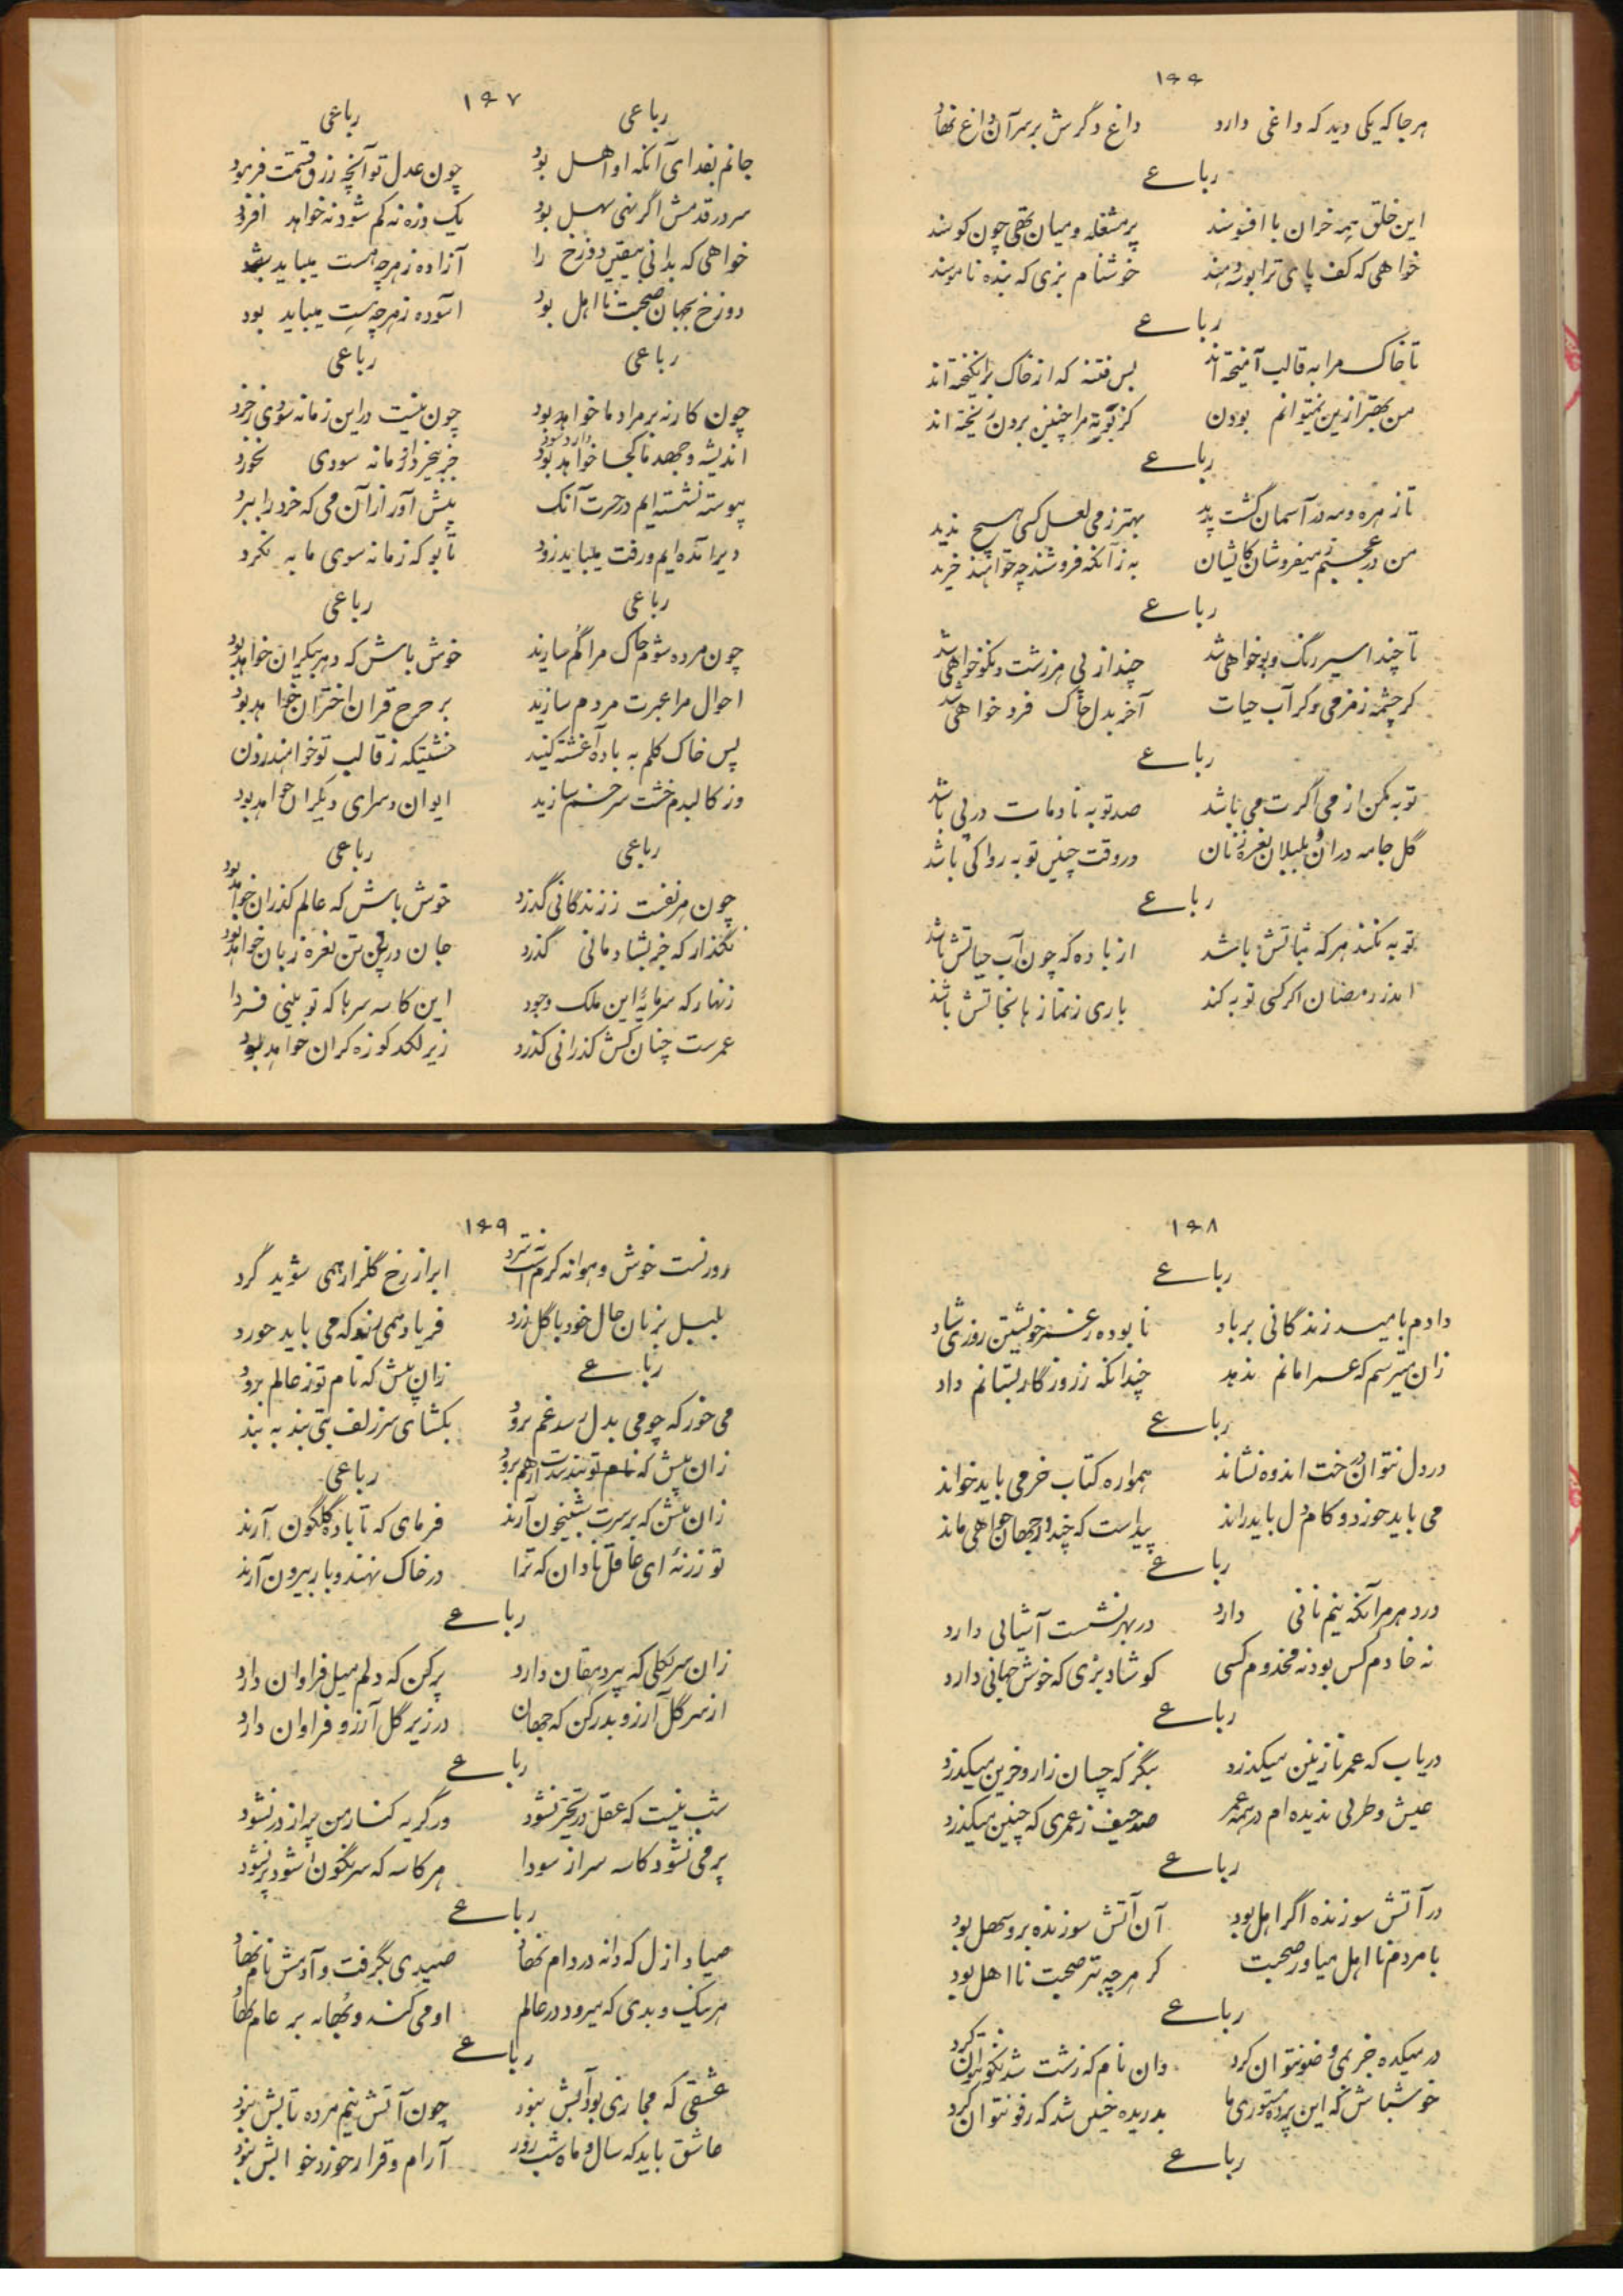 ۱۶۶
هر جا که یکی دید که داغی دارد داغ دگرش بر سر آن داغ نهاد
رباعے
این خلق همه خران با افسوسند پر مشغله و میان تهی چون کوسند
خواهی که کف پای ترا بوسه دهند خوشنام بزی که بنده ناموسند
رباعے
تا خاک مرا به قالب آمیخته اند بس فتنه که از خاک برانگیخته اند
من بهتر ازین نمیتوانم بودن کز بوته مرا چنین برون ریخته اند
رباعے
تا زهره و مه در آسمان گشت پدید بهتر ز می لعل کسی هیچ ندید
من در عجبم ز میفروشان کایشان به زآنکه فروشند چه خواهند خرید
رباعے
تا چند اسیر رنگ و بو خواهی شد چند از پی هر زشت و نکو خواهی شد
گر چشمه زمزمی و گر آب حیات آخر بدل خاک فرو خواهی شد
رباعے
توبه مکن از می اگرت می باشد صد توبه نادمات در پی باشد
گل جامه دران و بلبلان نعره زنان در وقت چنین توبه روا کی باشد
رباعے
توبه نکند هر که ثباتش باشد از باده که چون آب حیاتش باشد
اندر رمضان اگر کسی توبه کند باری ز نماز ها نجاتش باشد
۱۶۷
رباعی
جانم بفدای آنکه او اهل بود
سر در قدمش اگر نهی سهل بود
خواهی که بدانی بیقین دوزخ را
دوزخ بجهان صحبت نا اهل بود
رباعی
چون کار نه بر مراد ما خواهد بود
اندیشه و جهد ما کجا خواهد بود
پیوسته نشسته ایم در حسرت آنک
دیر آمده ایم و رفت میباید زود
رباعی
چون مرده شوم خاک مرا گم سازید
احوال مرا عبرت مردم سازید
پس خاک گلم به باده آغشته کنید
وز کالبدم خشت سر خم سازید
رباعی
چون هر نفست ز زندگانی گذرد
نگذار که جز بشادمانی گذرد
زنهار که سرمایهٔ این ملک وجود
عمرست چنان کش گذرانی گذرد
رباعی
چون عدل تو آنچه رزق قسمت فرمود
یک ذره نه کم شود نه خواهد افزود
آزاده ز هر چه هست میباید شد
آسوده ز هر چه نیست میباید بود
رباعی
چون نیست در این زمانه سودی ز خرد
جز بیخرد از زمانه سودی نخورد
پیش آور از آن می که خرد را ببرد
تا بو که زمانه سوی ما به نگرد
رباعی
خوش باش که دهر بیکران خواهد بود
بر چرخ قران اختران خواهد بود
خشتیکه ز قالب تو خواهند زدن
ایوان و سرای دیگران خواهد بود
رباعی
خوش باش که عالم گذران خواهد بود
جان در پی تن نعره زنان خواهد بود
این کاسه سرها که تو بینی فردا
زیر لگد کوزه گران خواهد بود
۱۶۸
رباعے
دادم بامید زندگانی بر باد نا بوده ز عمر خویشتن روزی شاد
زان میترسم که عمر امانم ندهد چندانکه ز روزگار بستانم داد
رباعے
در دل نتوان درخت اندوه نشاند همواره کتاب خرمی باید خواند
می باید خورد و کام دل باید راند پیداست که چند در جهان خواهی ماند
رباعے
در دهر هر آنکه نیم نانی دارد در بهر نشست آشیانی دارد
نه خادم کس بود نه مخدوم کسی گو شاد بزی که خوش جهانی دارد
رباعے
دریاب که عمر نازنین میگذرد بنگر که چسان زار و حزین میگذرد
عیش و طربی ندیده ام در همه عمر صد حیف ز عمری که چنین میگذرد
رباعے
در آتش سوزنده اگر اهل بود آن آتش سوزنده برو سهل بود
با مردم نا اهل میاور صحبت کز هر چه بتر صحبت نا اهل بود
رباعے
در میکده جز بمی وضو نتوان کرد وان نام که زشت شد نکو نتوان کرد
خوشباش که این پرده مستوری ما بدریده چنین شد که رفو نتوان کرد
رباعے
۱۶۹
روزیست خوش و هوا نه گرم است نه سرد ابر از رخ گلزار همی شوید گرد
بلبل بزبان حال خود با گل زرد فریاد همی زند که می باید خورد
رباعے
می خور که چو می بدل رسد غم برود زان پیش که نام تو ز عالم برود
بگشای سر زلف بتی بند به بند
زان پیش که بند بندت از هم برود
رباعی
زان پیش که بر سرت شبیخون آرند فرمای که تا باده گلگون آرند
تو زر نهٔ ای غافل نادان که ترا در خاک نهند و باز بیرون آرند
رباعے
زان سر بگلی که پیر دهقان دارد پر کن که دلم میل فراوان دارد
از سر گل آرزو بدر کن که جهان در زیر گل آرزو فراوان دارد
رباعے
شب نیست که عقل در تحیر نشود ور گریه کنار من پر از در نشود
پر می نشود کاسه سر از سودا هر کاسه که سرنگون شود پر نشود
رباعے
صیاد ازل که دانه در دام نهاد صیدی بگرفت و آدمش نام نهاد
هر نیک و بدی که میرود در عالم او می کند و بهانه بر عام نهاد
رباعے
عشقی که مجازی بود آبش نبود چون آتش نیم مرده تابش نبود
عاشق باید که سال و ماه شب و روز آرام و قرار و خورد و خوابش نبود